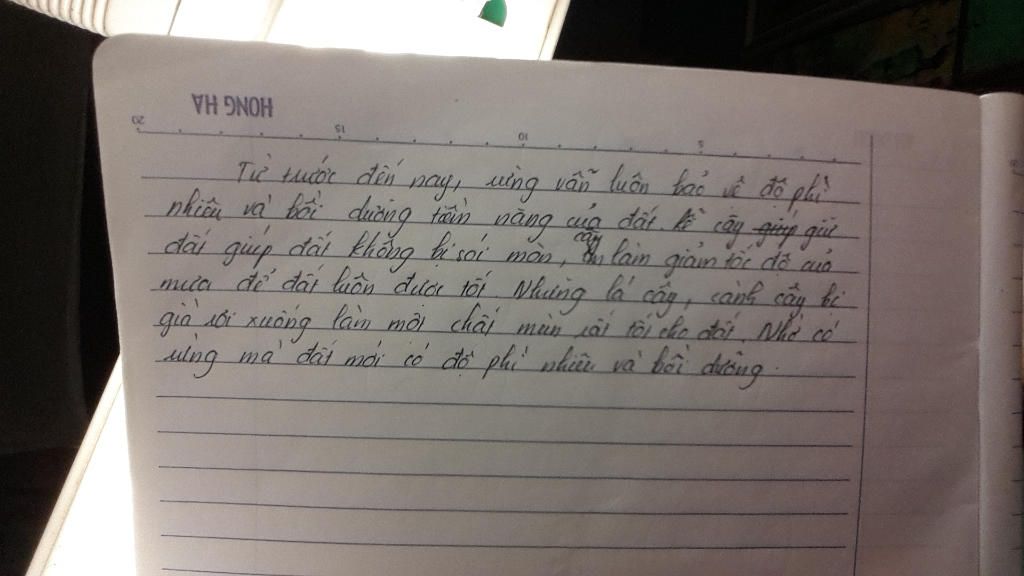 HONG HA
20 15 10 5
Từ trước đến nay, rừng vẫn luôn bảo vệ độ phì
nhiêu và bồi dưỡng tiềm năng của đất. Rễ cây giữ
đất giúp đất không bị sói mòn, cây làm giảm tốc độ của
mưa để đất luôn được tốt. Những lá cây, cành cây bị
già rơi xuống làm mới chất mùn rất tốt cho đất. Nhờ có
rừng mà đất mới có độ phì nhiêu và bồi dưỡng.